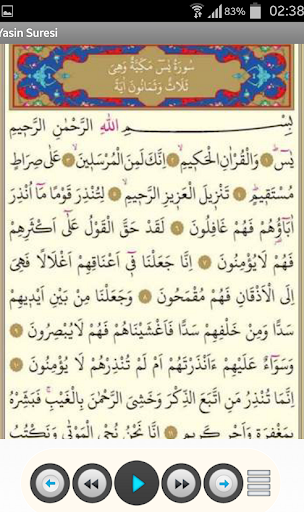 83% 02:38
Yasin Suresi
سُورَةُ يٰسٓ مَكِّيَّةٌ وَهِيَ
ثَلَاثٌ وَثَمَانُونَ اٰيَةً
بِسْمِ اللّٰهِ الرَّحْمٰنِ الرَّحِيمِ
يٰسٓ ۚ ﴿١﴾ وَالْقُرْاٰنِ الْحَكِيمِ ۙ ﴿٢﴾ اِنَّكَ لَمِنَ الْمُرْسَلِينَ ۙ ﴿٣﴾ عَلٰى صِرَاطٍ
مُسْتَقِيمٍ ۜ ﴿٤﴾ تَنْزِيلَ الْعَزِيزِ الرَّحِيمِ ۙ ﴿٥﴾ لِتُنْذِرَ قَوْمًا مَٓا اُنْذِرَ
اٰبَٓاؤُهُمْ فَهُمْ غَافِلُونَ ﴿٦﴾ لَقَدْ حَقَّ الْقَوْلُ عَلٰٓى اَكْثَرِهِمْ
فَهُمْ لَا يُؤْمِنُونَ ﴿٧﴾ اِنَّا جَعَلْنَا فِٓي اَعْنَاقِهِمْ اَغْلَالًا فَهِيَ
اِلَى الْاَذْقَانِ فَهُمْ مُقْمَحُونَ ﴿٨﴾ وَجَعَلْنَا مِنْ بَيْنِ اَيْدِيهِمْ
سَدًّا وَمِنْ خَلْفِهِمْ سَدًّا فَاَغْشَيْنَاهُمْ فَهُمْ لَا يُبْصِرُونَ ﴿٩﴾
وَسَوَٓاءٌ عَلَيْهِمْ ءَاَنْذَرْتَهُمْ اَمْ لَمْ تُنْذِرْهُمْ لَا يُؤْمِنُونَ ﴿١٠﴾
اِنَّمَا تُنْذِرُ مَنِ اتَّبَعَ الذِّكْرَ وَخَشِيَ الرَّحْمٰنَ بِالْغَيْبِ ۚ فَبَشِّرْهُ
بِمَغْفِرَةٍ وَاَجْرٍ كَرِيمٍ ﴿١١﴾ اِنَّا نَحْنُ نُحْيِ الْمَوْتٰى وَنَكْتُبُ